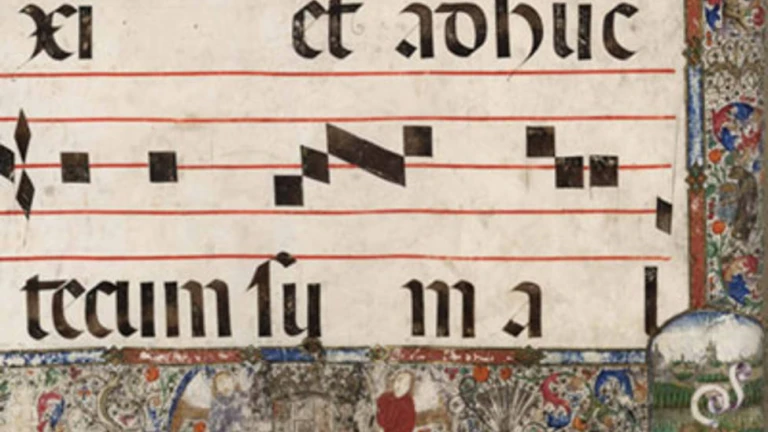 xi et adhuc
tecum sum al